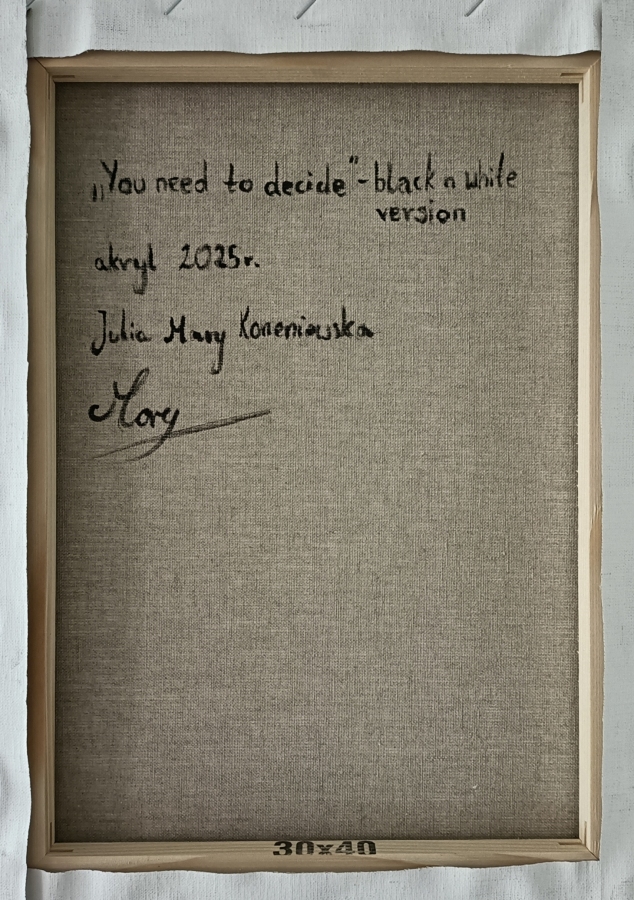 „You need to decide"-black n white
version
akryl 2025r.
Julia Mary Koneniewska
Mary
30x40